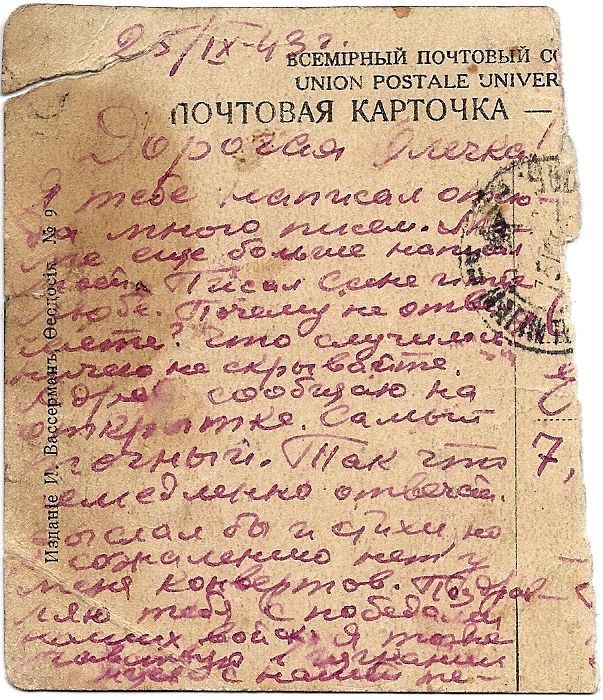 25/IX-43 г.
ВСЕМІРНЫЙ ПОЧТОВЫЙ СО
UNION POSTALE UNIVER
ПОЧТОВАЯ КАРТОЧКА —
Дорогая Олечка!
Я тебе написал отсю-
да много писем.
ме еще больше написал
Писал Симе и тебе
Любе. Почему не отве
чаете? Что случилось
ничего не скрывайте.
Адрес сообщаю на
открытке. Самый
точный. Так что
емедленно отвечай.
ыслал бы и стихи но
сожалению нет у
меня конвертов. Поздрав-
ляю тебя с победами
наших войск. Я тоже
с нашей ре-
7,
Изданіе И. Вассерманъ, Ѳеодосія. № 9